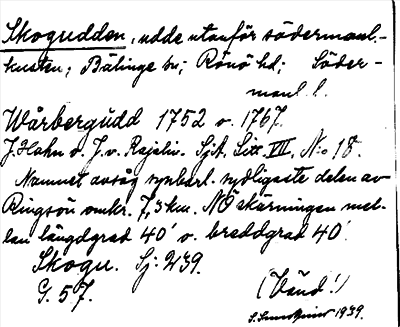 Skogudden, udde utanför södermanl.-
kusten; Bälinge sn; Rönö hd; Söder-
manl. l.
Wårbergudd 1752 o. 1767.
J. Hahn o. J. v. Rajalin. SjA, Litt. VII, N:o 18.
Namnet avsåg synbarl. sydligaste delen av
Ringsön omkr. 7,3 km. NO skärningen mel-
lan längdgrad 40′ o. breddgrad 40′.
Skogu. Sj: 239.
G. 57.
(Vänd!)
1939.